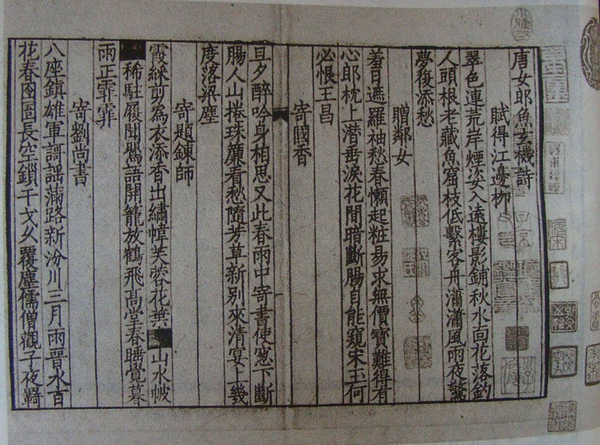 唐女郎魚玄機詩
賦得江邊柳
翠色連荒岸煙姿入遠樓影鋪秋水面花落釣
人頭根老藏魚窟枝低繫客舟瀟瀟風雨夜驚
夢復添愁
贈鄰女
羞日遮羅袖愁春懶起粧易求無價寶難得有
心郎枕上潛垂淚花間暗斷腸自能窺宋玉何
必恨王昌
寄國香
旦夕醉吟身相思又此春雨中寄書使窓下斷
腸人山捲珠簾看愁隨芳草新別來清宴上幾
度落梁塵
寄題鍊師
霞綵剪爲衣添香出繡幃芙蓉花葉山水帔
稀駐履聞鶯語開籠放鶴飛高堂春睡覺暮
雨正霏霏
寄劉尚書
八座鎮雄軍謌謠滿路新汾川三月雨晉水百
花春囹圄長空鎖干戈久覆塵儒僧觀子夜羈